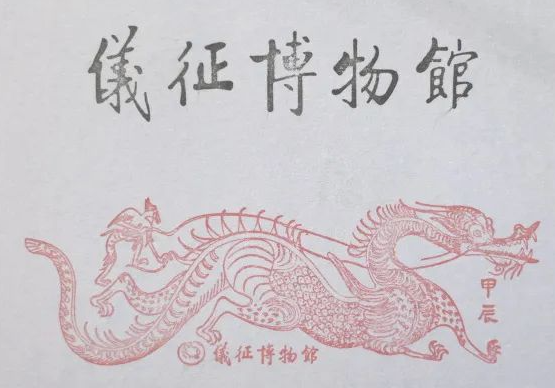 儀征博物館
甲辰
儀征博物館